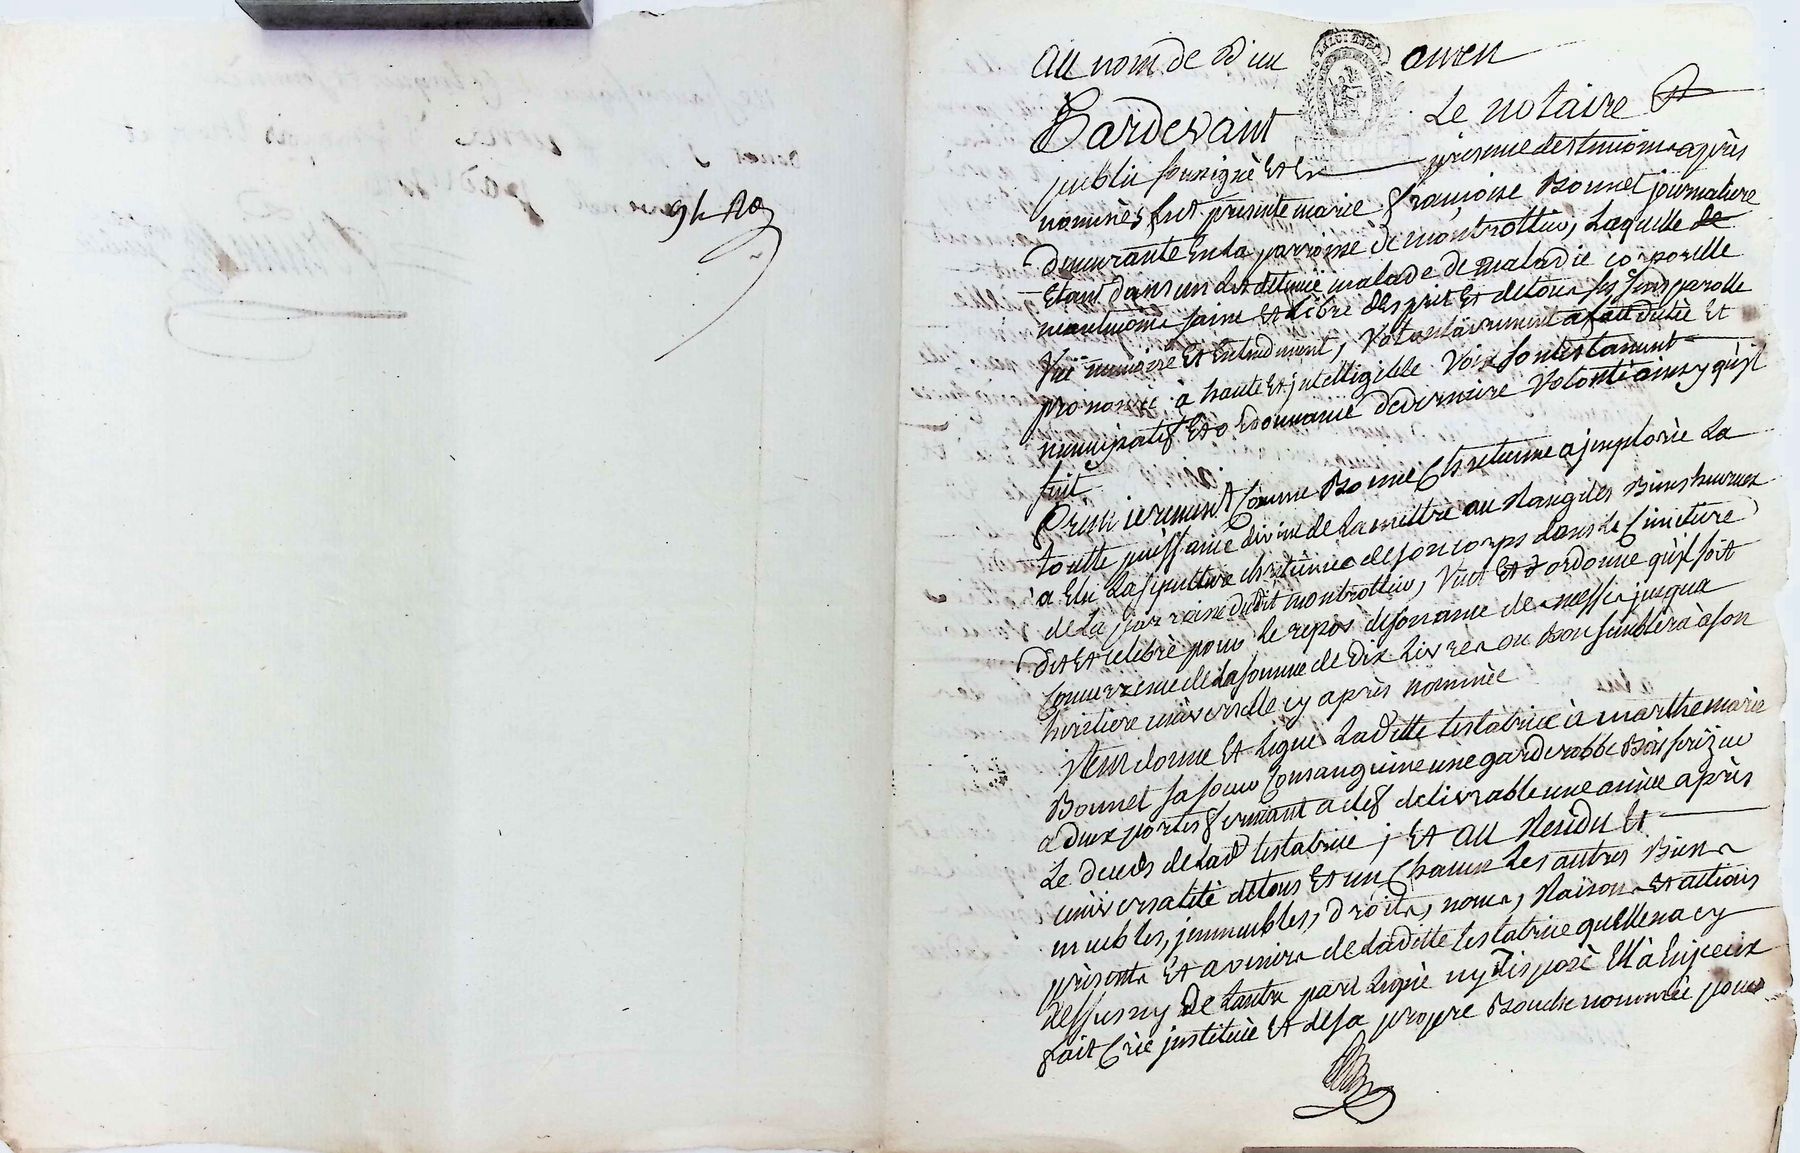 94 No
au nom de Dieu amen
LA LOI
Pardevant Le notaire
publi soussigné et en presence des temoins après
nommés fut presente marie françoise Bonnet journaliere
demeurante en la parroisse de montrottier, Laquelle de
Etant dans un lit detenüe malade de maladie corporelle
neantmoins saine et libre desprit et de tous ses sens parolle
Vüe memoire et Entendement, Volontairement a fait dicté et
prononcé a haute et jntelligible Voix son testament
nuncupatif et ordonnance de derniere Volonté ainsy quil
suit
Premierement comme Bonne Chretienne a jmplorée La
toutte puissance divine de la mettre au Rang des Bienheureux
a Elu La sepulture chretienne de son corps dans Le Cimetiere
de La parroisse dudit montrottier, Veut et ordonne quil soit
dit et celebré pour le repos de son ame de messes jusqua
Concurrence de la somme de dix Livres ou Bon semblera à son
heritiere universelle cy après nommée
jtem donne et legue Laditte testatrice à marthe marie
Bonnet sa soeur Consanguine une garderobbe Bois serizier
a deux portes fermant a clef delivrable une année après
Le deces de Lad testatrice ; et au Residu et
universalité de tous et un Chacun Les autres Biens
meubles, jmmeubles, droits, noms, Raisons et actions
présents et avenirs de Laditte testatrice quelle na cy
dessus ny de Lautre part legué ny disposé Et à Lui
fait Crée jnstitué et de sa propre Bouche nommée pour